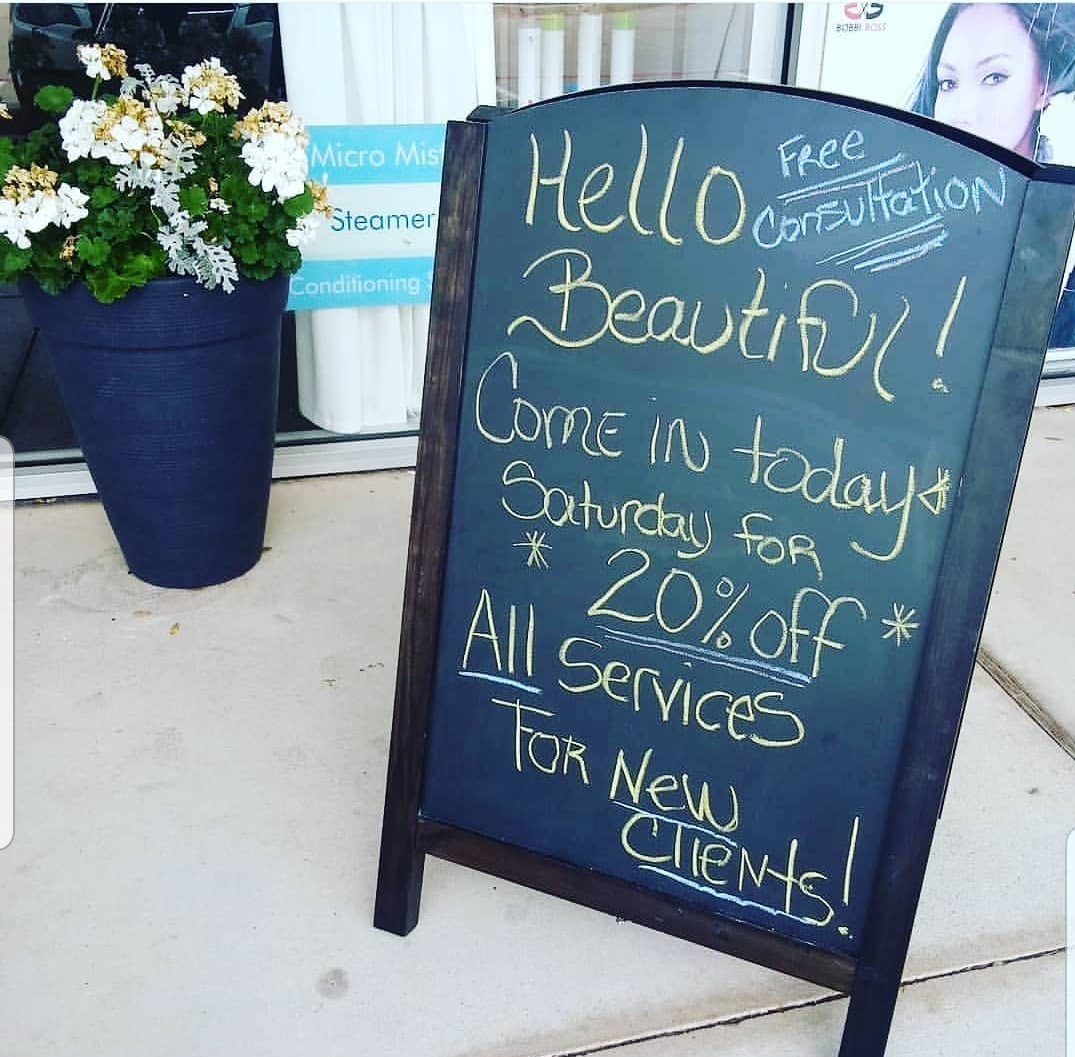 BOBBI BOSS
Micro Mis
Steamer
Conditioning
Hello
Free
Consultation
Beautiful!
Come in today
Saturday for
* 20% off *
All Services
For New
Clients!